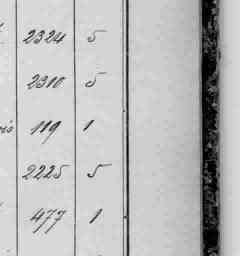 2324 5
2310 5
119 1
2225 5
477 1